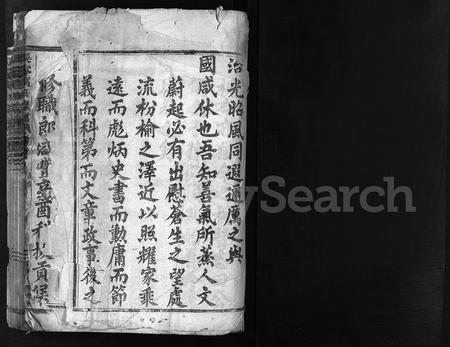 治光昭風同遐通厲之與
國咸休也吾知善氣所蒸人文
蔚起必有出慰蒼生之望處
流枌榆之澤近以照耀家乘
遠而彪炳史書而勳庸而節
義而科第而文章政事後之
修職郎
Search